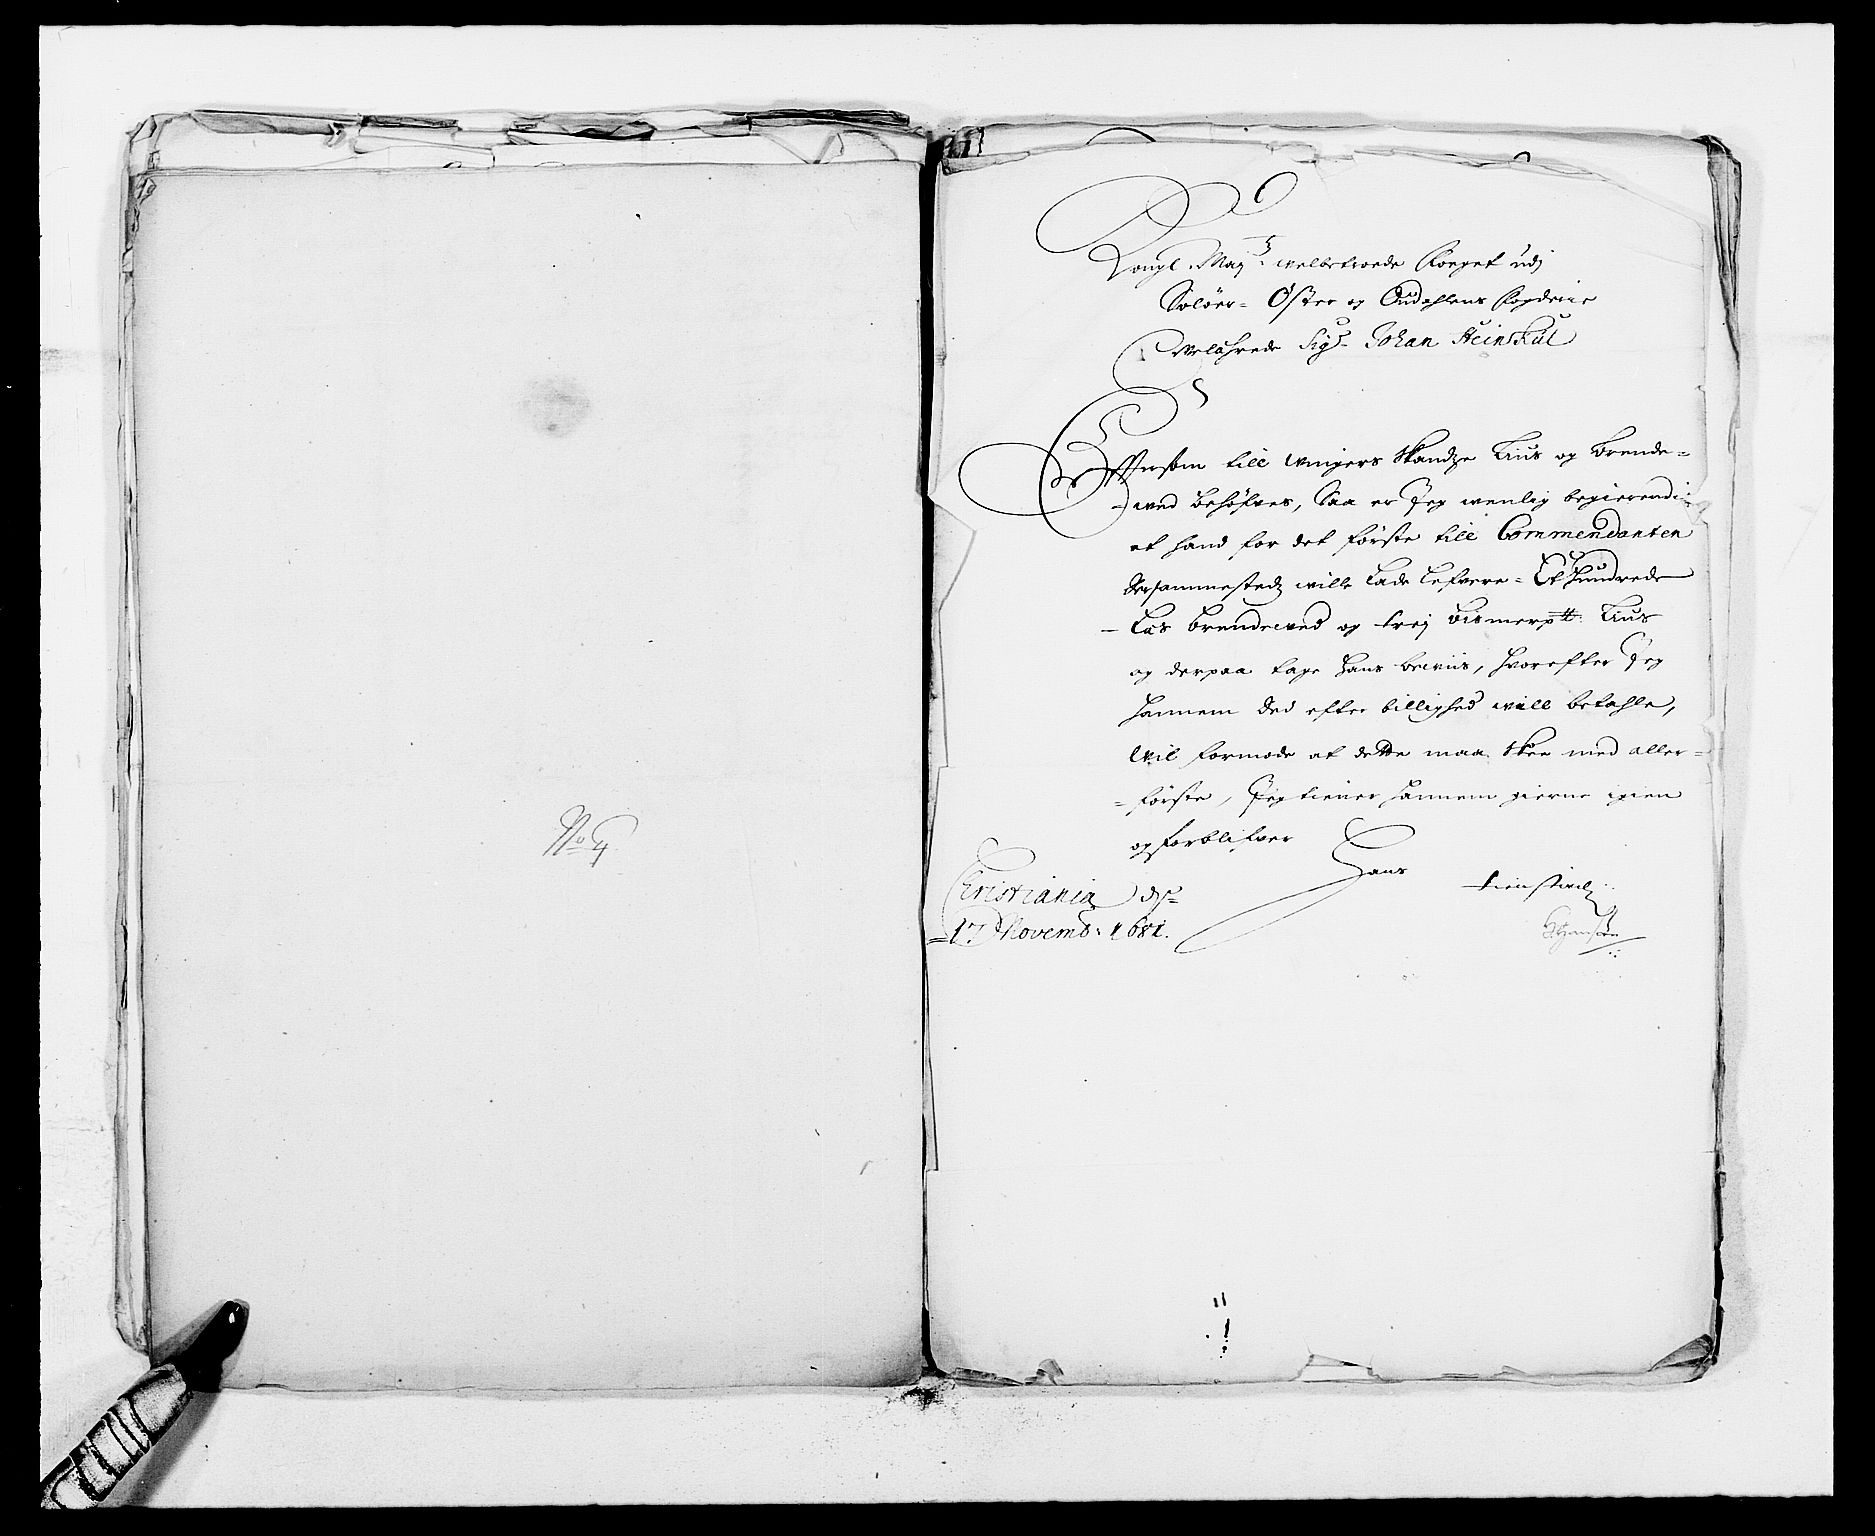 No 4
Kongl. Mayts. welbetroede Foeget udj
Soløer- Øster og Oudahlens Fogderie
Welachrede Sigr. Johan Steinkul
Effterson till Wingers Skandze Lius og Brende-
-wed behøfves, Saa er Jeg wenlig begierendis
at hand for det første till Commendanten
dersammestedz wille lade lefvere- Et Hundrede
Las brendewed og trej bismerptt. Lius
og derpaa tage hans beviis, hvorefter Jeg
hannem ded efter billighed will betahle,
Wil formode at dette maa skee med aller-
-første, Jeg tiener hannem gierne igien
og forblifver
Hans
tienstwil
Christiania ds-
17 Novemb: 1681.